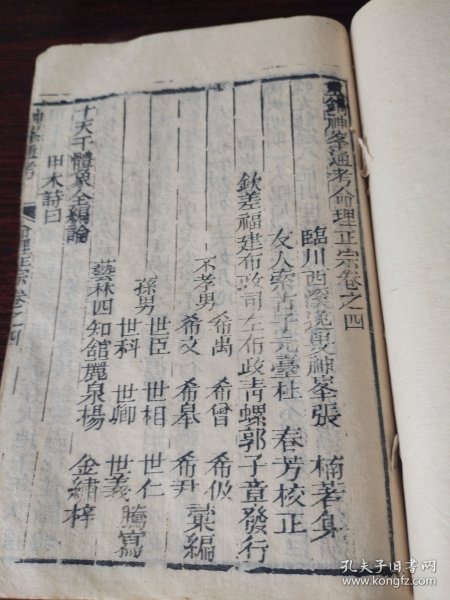 重鐫神峯通考命理正宗卷之四
臨川西溪逸叟神峯張 楠著集
友人 子元臺杜 春芳校正
欽差福建布政司左布政青螺郭子章發行
不孝男 希禹 希曾 希伋
希文 希皋 希尹 叢編
孫男 世臣 世相 世仁
世科 世卿 世義 騰寫
藝林四知館麗泉楊 金繡梓
十天干體象全編論
甲木詩曰
神峯通考 命理正宗卷之四
孔夫子旧书网
book.kongfz.com